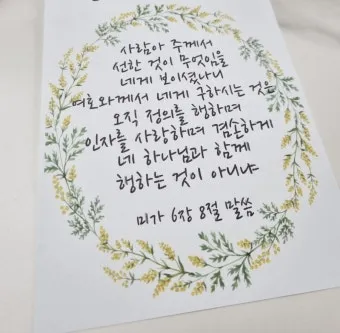 사람아 주께서
선한 것이 무엇임을
네게 보이셨나니
여호와께서 네게 구하시는 것은
오직 정의를 행하며
인자를 사랑하며 겸손하게
네 하나님과 함께
행하는 것이 아니냐
미가 6장 8절 말씀